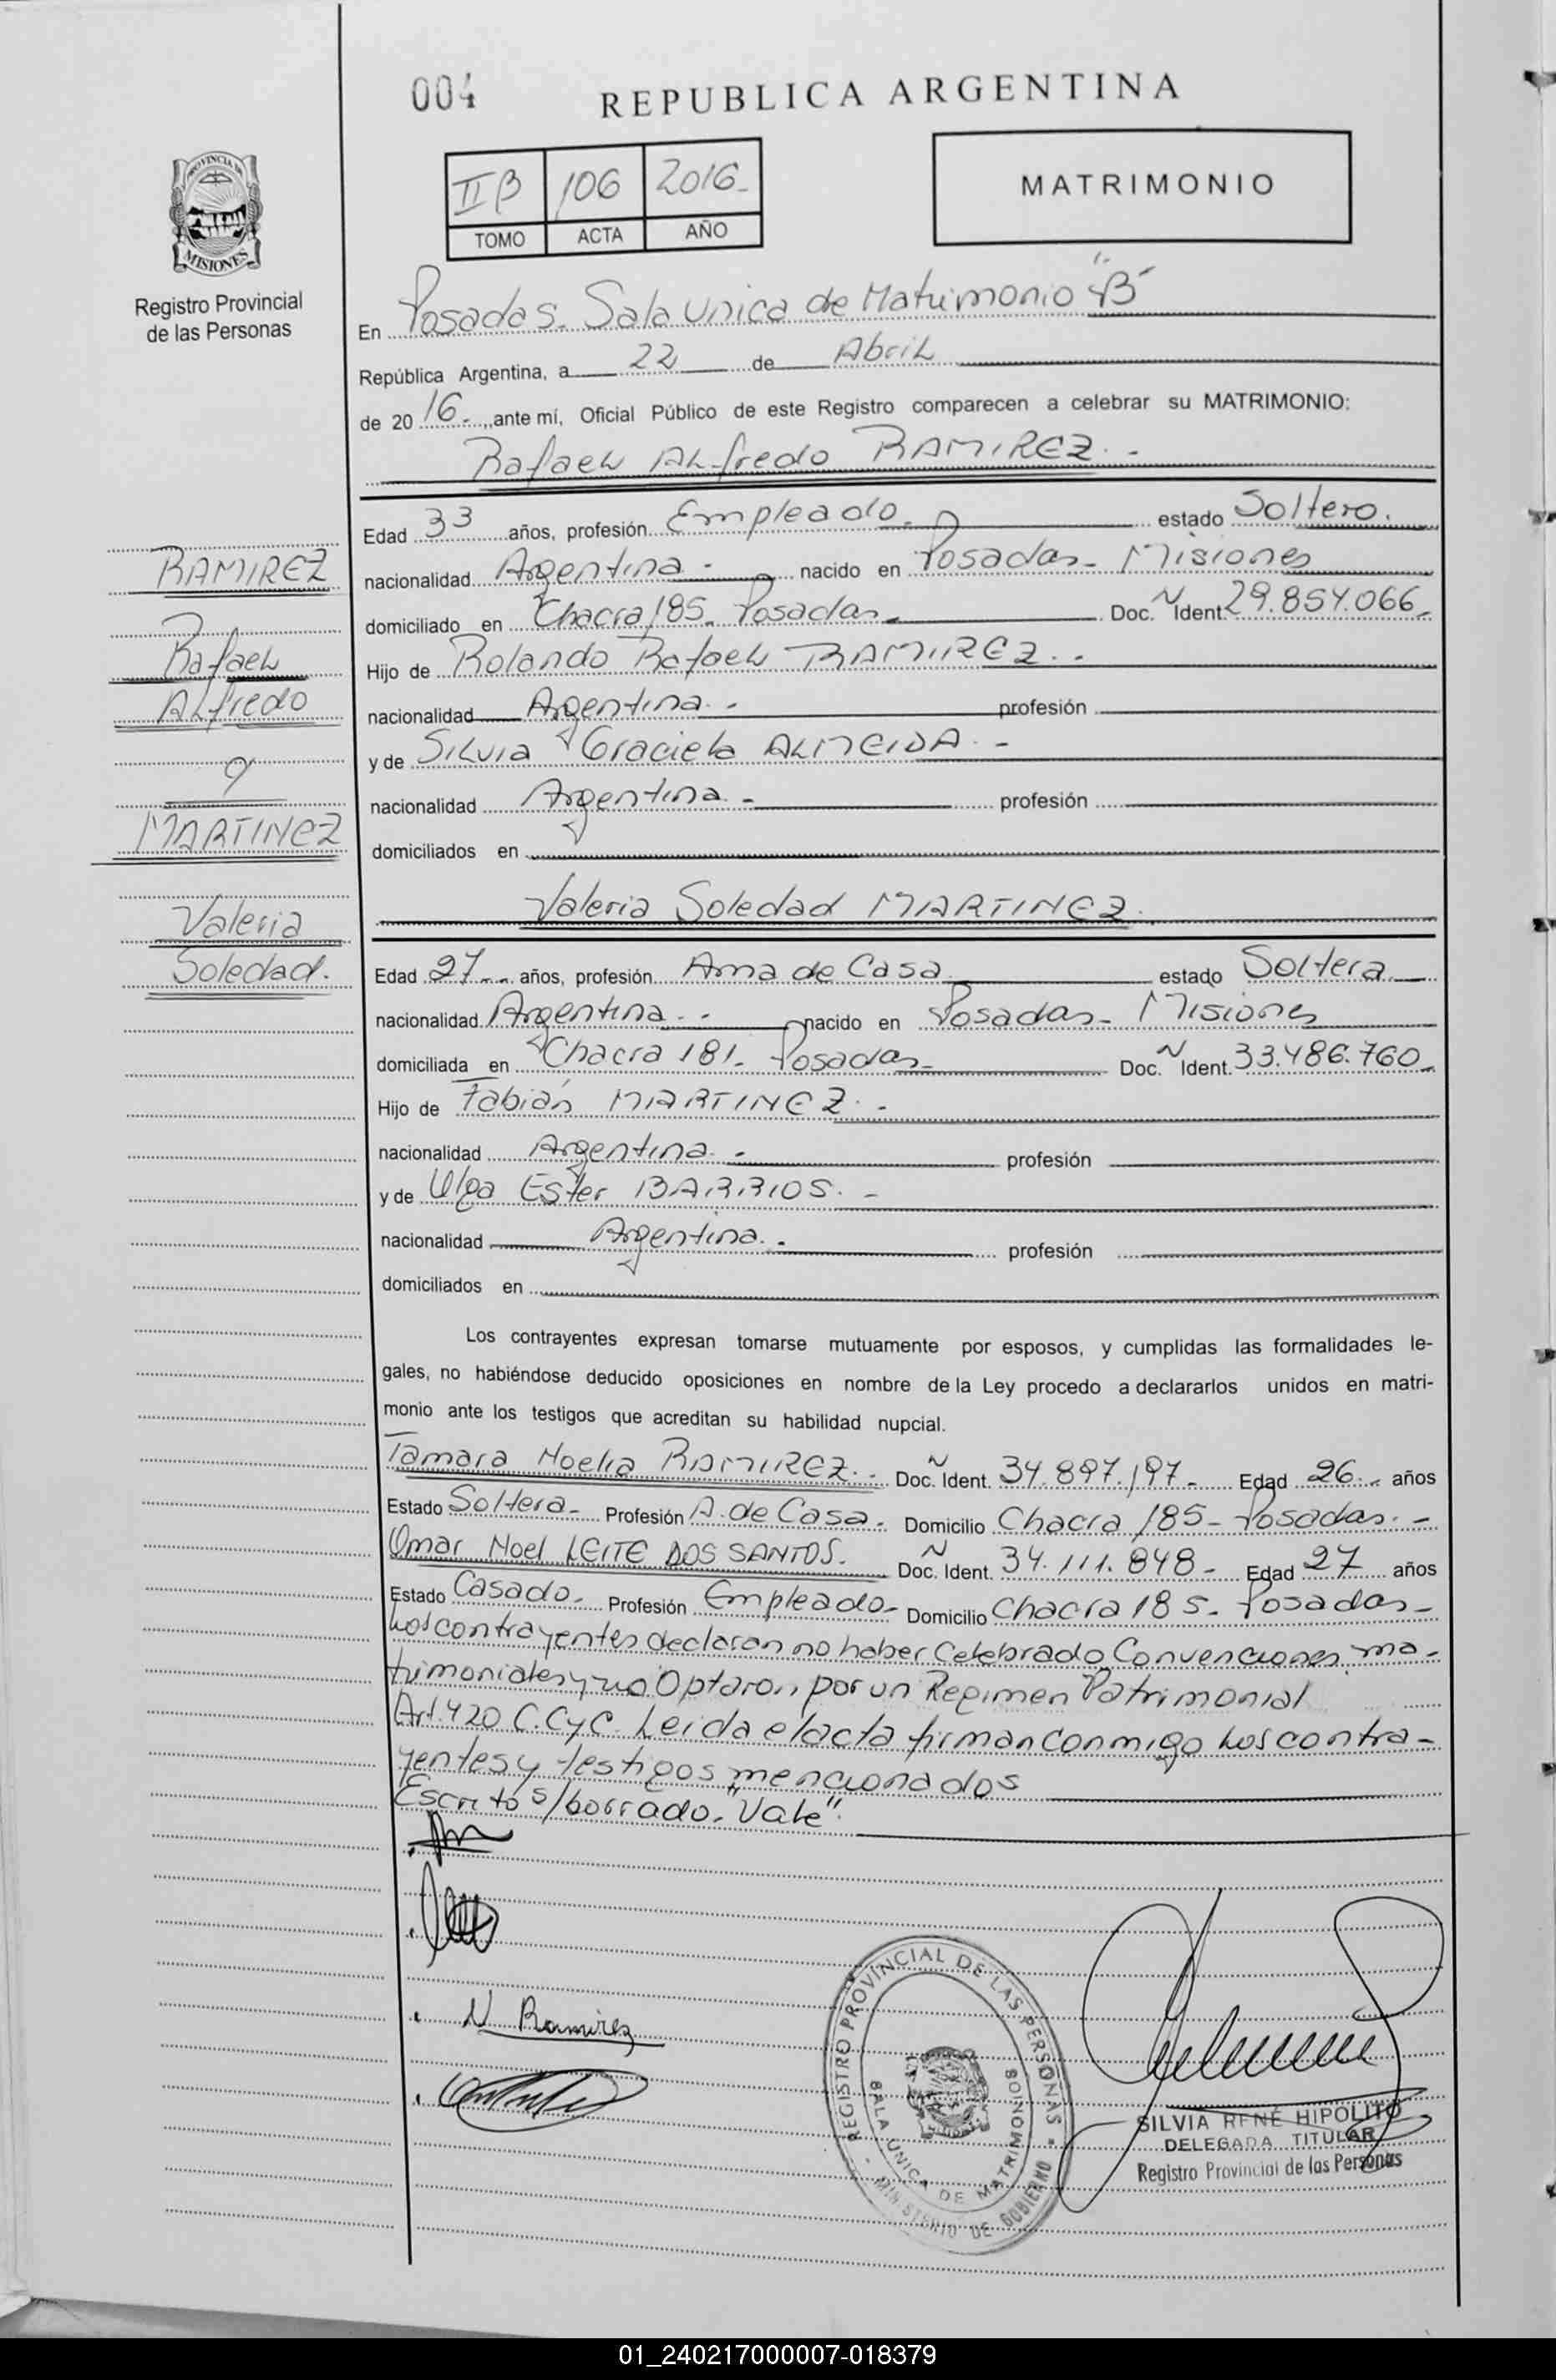 004
REPUBLICA ARGENTINA
II B 106 2016-
TOMO ACTA AÑO
MATRIMONIO
PROVINCIA DE
MISIONES
Registro Provincial
de las Personas
En Posadas. Sala Unica de Matrimonio "B"
República Argentina, a 22 de Abril
de 2016., ante mí, Oficial Público de este Registro comparecen a celebrar su MATRIMONIO:
Rafael Alfredo RAMIREZ. -
Edad 33 años, profesión Empleado. estado Soltero.
nacionalidad Argentina - nacido en Posadas - Misiones
domiciliado en Chacra 185. Posadas - Doc. N Ident. 29.854.066.
Hijo de Rolando Rafael RAMIREZ. -
nacionalidad Argentina. - profesión
y de Silvia Graciela ALMEIDA. -
nacionalidad Argentina - profesión
domiciliados en
RAMIREZ
Rafael
Alfredo
y
MARTINEZ
Valeria
Soledad.
Valeria Soledad MARTINEZ.
Edad 27 - - años, profesión Ama de Casa estado Soltera
nacionalidad Argentina. - nacido en Posadas - Misiones
domiciliada en Chacra 181. Posadas - Doc. N Ident. 33.486.760.
Hijo de Fabián MARTINEZ. -
nacionalidad Argentina. - profesión
y de Olga Ester BARRIOS. -
nacionalidad Argentina. - profesión
domiciliados en
Los contrayentes expresan tomarse mutuamente por esposos, y cumplidas las formalidades le-
gales, no habiéndose deducido oposiciones en nombre de la Ley procedo a declararlos unidos en matri-
monio ante los testigos que acreditan su habilidad nupcial.
Tamara Noelia RAMIREZ. - Doc. N Ident. 34.897.197 - Edad 26 años
Estado Soltera - Profesión A. de Casa. Domicilio Chacra 185 - Posadas. -
Omar Noel LEITE DOS SANTOS. Doc. N Ident. 34.111.848 - Edad 27 años
Estado Casado. Profesión Empleado - Domicilio Chacra 185 - Posadas -
Los contrayentes declaran no haber Celebrado Convenciones ma-
trimoniales y no Optaron por un Regimen Patrimonial
Art. 420 C.CyC. Leida el acta firman conmigo los contra-
yentes y testigos mencionados
Escrito s/borrado. "Vale".
N Ramirez
REGISTRO PROVINCIAL DE LAS PERSONAS
SALA UNICA DE MATRIMONIOS
MINISTERIO DE GOBIERNO
SILVIA RENÉ HIPÓLITO
DELEGADA TITULAR
Registro Provincial de las Personas
01_240217000007-018379